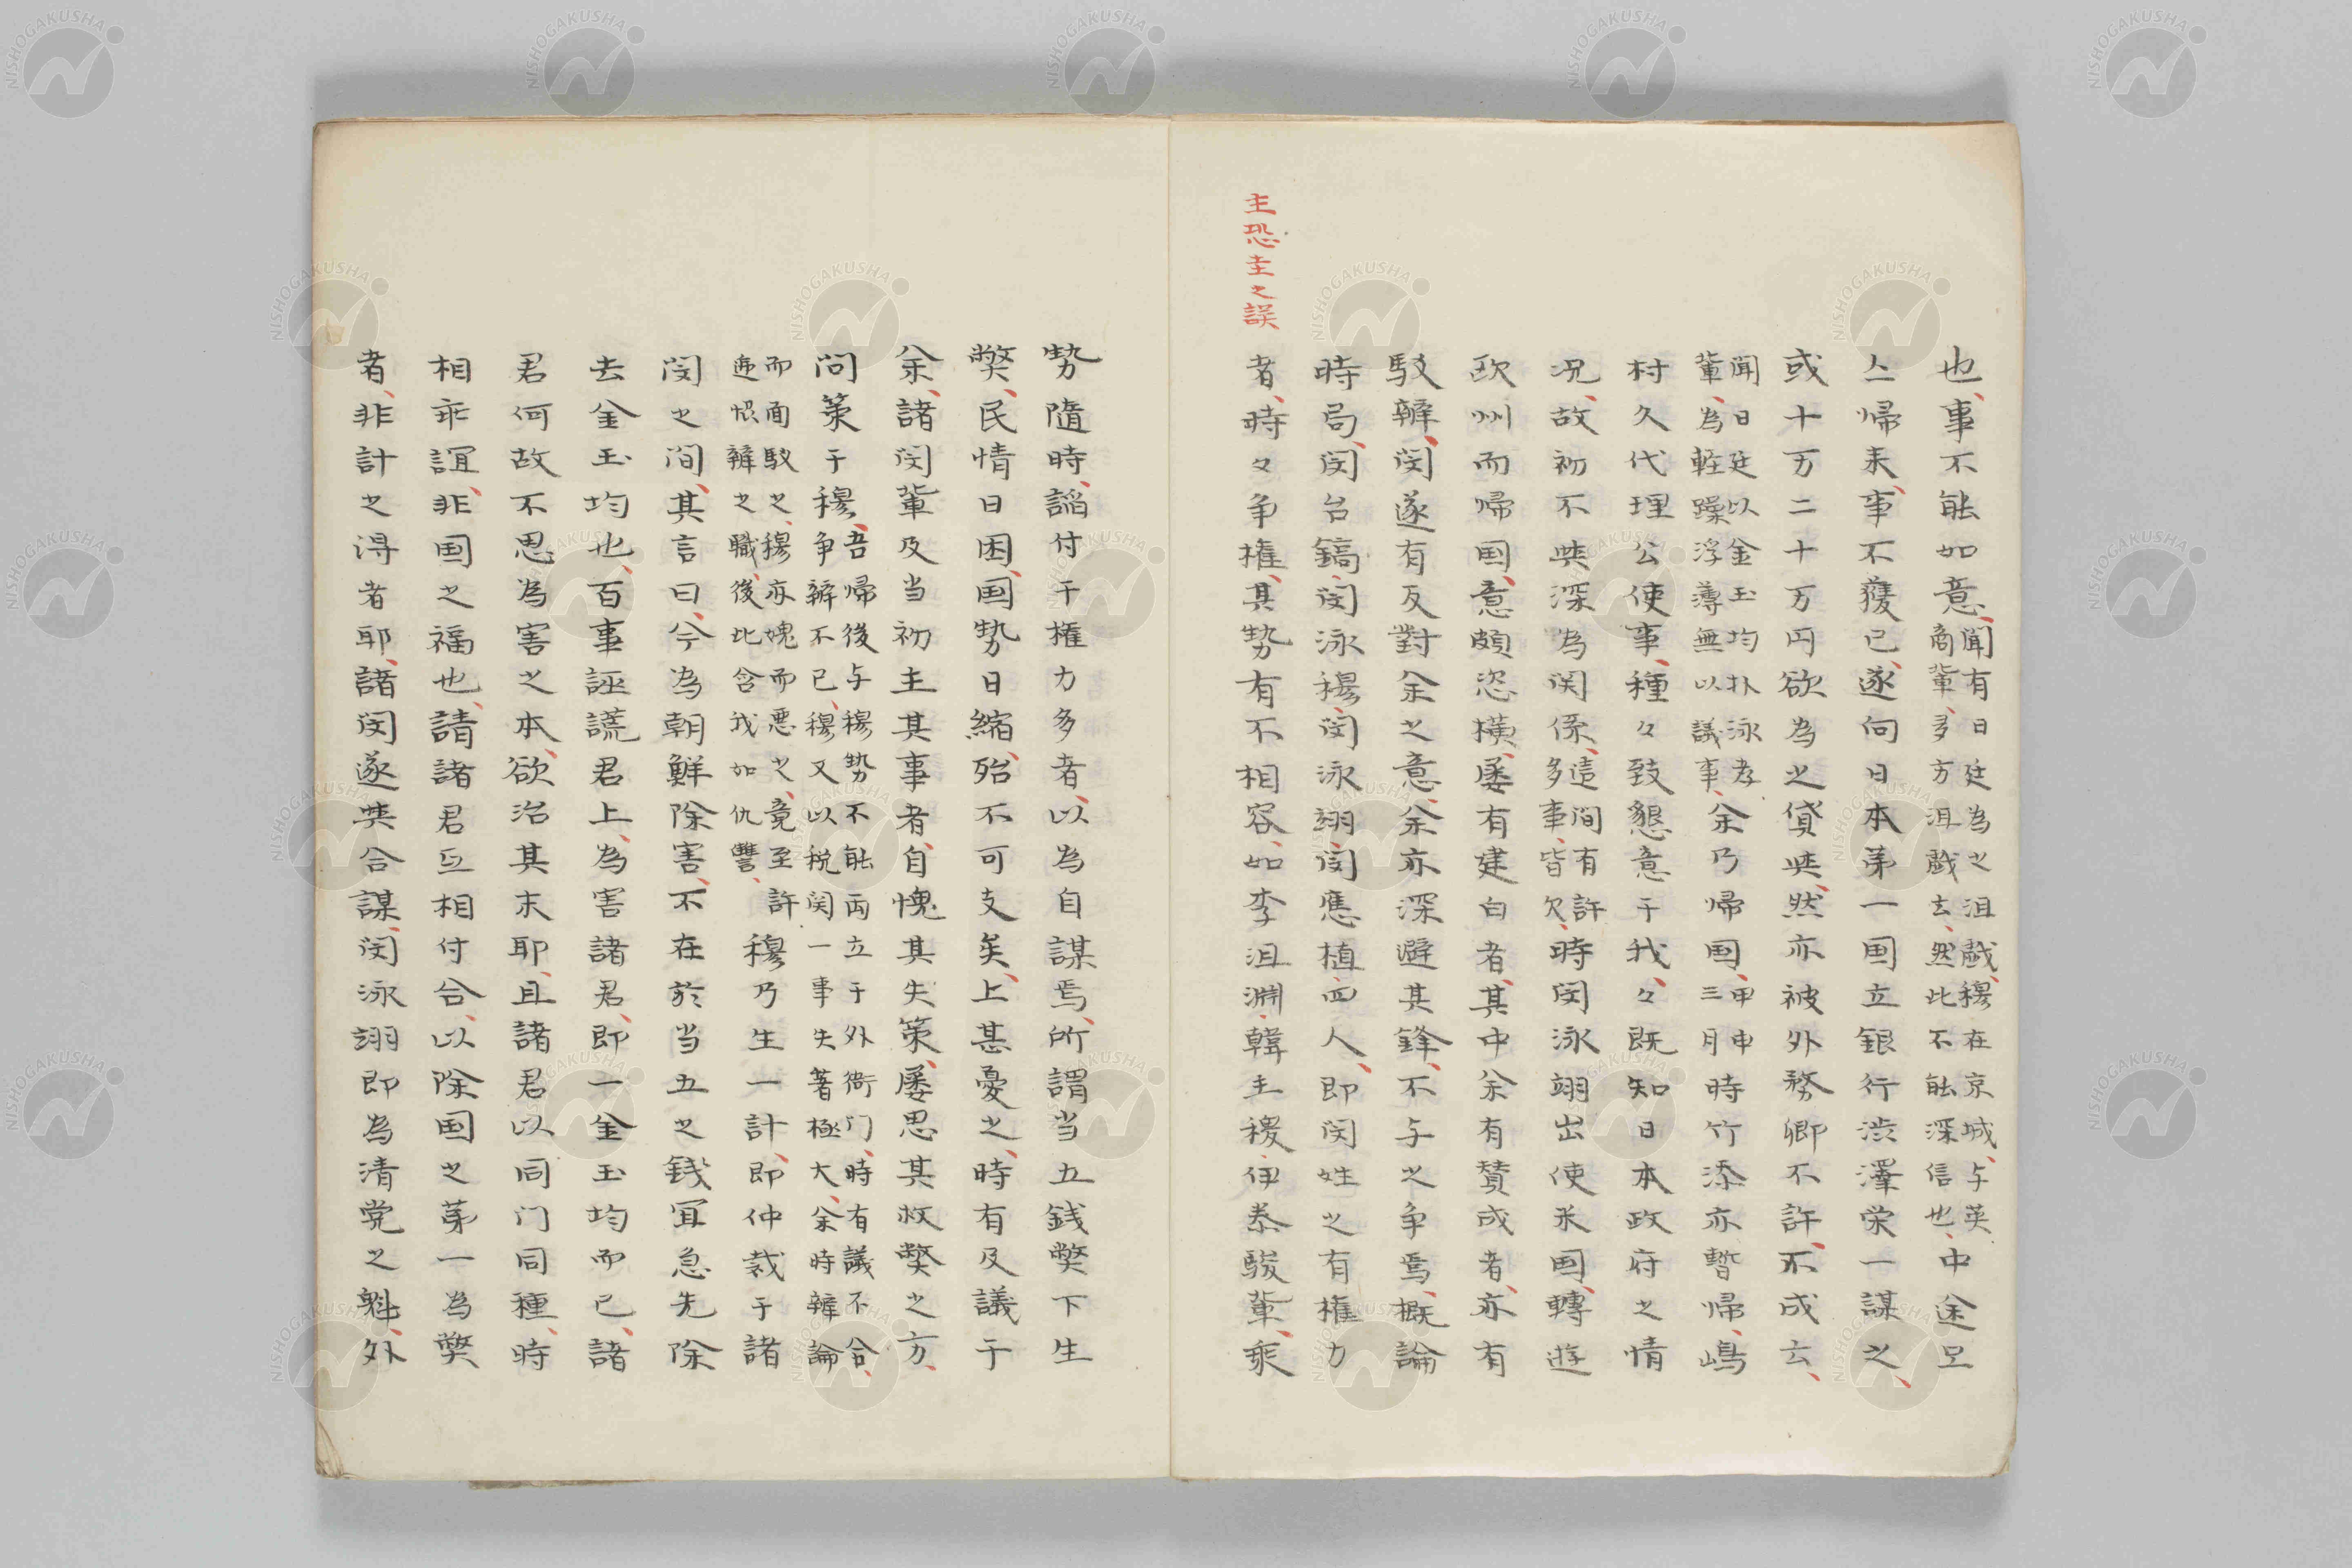 也、事不能如意、聞有日廷為之沮戱、穆在京城、与英
商輩、多方沮戱去、然此不能深信也、中途
帰来、事不獲已、遂向日本第一国立銀行渋澤栄一謀之、
或十万二十万円欲為之貸與、然亦被外務卿不許、不成云、
聞日廷以金玉均朴泳孝
輩、為軽躁浮薄無以議事、余乃帰国、甲申
三月時竹添亦暫帰、嶋
村久代理公使事、種々致懇意于我、々既知日本政府之情
況、故初不與深為関係、這間有許
多事、皆欠、時閔泳翊出使米国、轉遊
欧州而帰国、意頗恣横、屡有建白者、其中余有賛成者、亦有
駁辨、閔遂有反對余之意、余亦深避其鋒、不与之争焉、概論
時局、閔台鎬、閔泳穆、閔泳翊、閔應植、四人、即閔姓之有権力
主恐圭之誤
者、時々争権、其勢有不相容、如李沮淵、韓主稷、伊泰駿輩、乗
勢隨時、謟付于権力多者、以為自謀焉、所謂当五銭獘下生
獘、民情日困、国勢日縮、殆不可支矣、上甚憂之、時有及議于
余、諸閔輩及当初主其事者、自愧其失策、屡思其救獘之方、
問策于穆、吾帰後与穆勢不能両立于外衙門、時有議不合、
争辨不已、穆又以税関一事失著極大、余時辨論
而面駁之、穆亦愧而悪之、竟至許
遞恨辨之職、後此含我如仇讐、穆乃生一計、即仲裁于諸
閔之間、其言曰、今為朝鮮除害、不在於当五之銭冝急先除
去金玉均也、百事誣謊君上、為害諸君、即一金玉均而已、諸
君何故不思為害之本、欲治其末耶、且諸君以同门同種、時
相乖誼、非国之福也、請諸君互相付合、以除国之第一為獘
者、非計之得者耶、諸閔遂與合謀、閔泳翊即為清党之魁、外